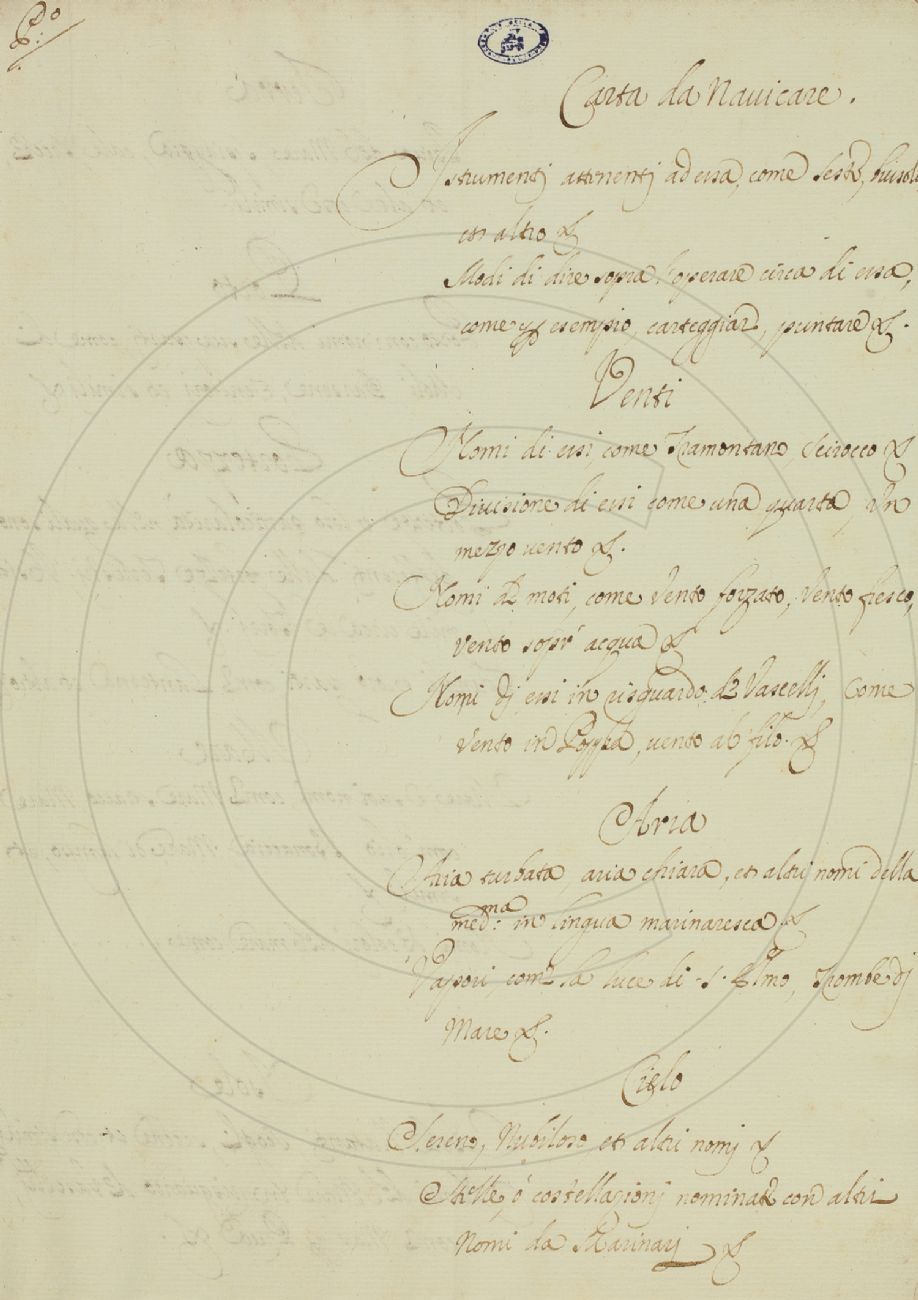 P.º 8:
Carta da Nauicare.
Istrumentj attinentj ad essa, come Seste, bussola
et altro &
Modi di dire sopra l'operare circa di essa,
come p esempio, carteggiare, puntare &.
Venti
Nomi di essi, come Tramontana, Scirocco &
Diuisione di essi come una quarta, Un
mezzo uento &.
Nomi de moti, come Vento forzato, Vento fresco,
Vento sopr' acqua &
Nomi dj essi in risguardo de Vascellj, Come
Vento in Poppa, uento al filo. &
Aria
Aria turbata, aria chiara, et altri nomi della
med:ma in lingua marinaresca &
Vapori, come la luce di S. Elmo, Trombe dj
Mare &.
Cielo
Sereno, Nubiloso, et altri nomj &
Stelle, ò costellazionj nominate con altri
Nomi da Marinarj &